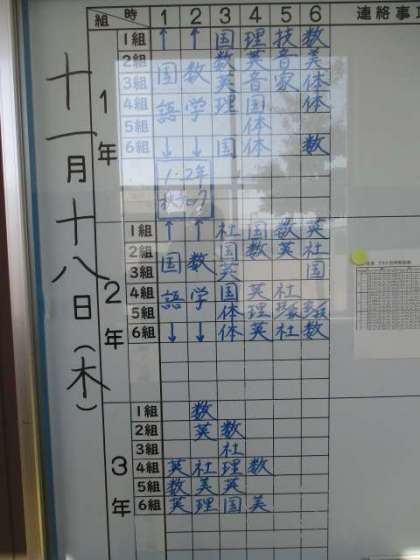 十一月十八日(木)
組 時 1 2 3 4 5 6 連絡事項
1年
1組 ↑ ↑ 国 理 技 数
2組 数 英 音 美
3組 国 数 英 音 家 体
4組 語 学 理 国 体
5組 体
6組 ↓ ↓ 国 数
1・2年
2年
1組 ↑ ↑ 社 国 数 英
2組 国 数 英 社
3組 国 数 英 国
4組 語 学 国 英 社
5組 体 理
6組 ↓ ↓ 体 英 社 数
3年
1組 数
2組 英 数
3組 社
4組 英 社 理 数
5組 数 美 英
6組 英 理 国 美